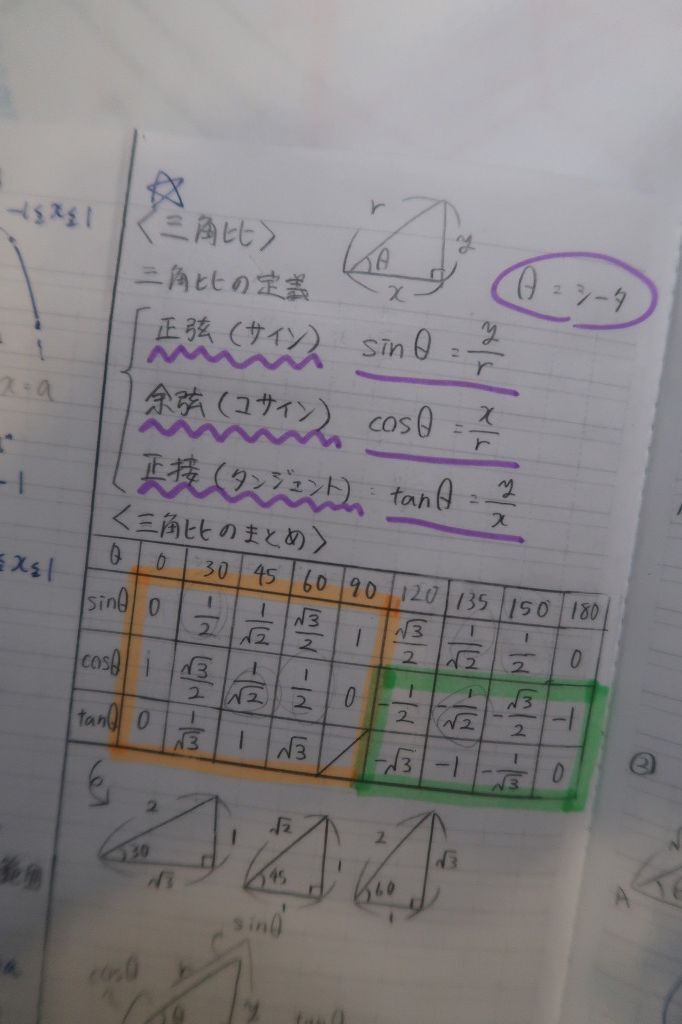 -1≦x≦1
r
〈三角比〉
θ
y
x
三角比の定義
θ = シータ
正弦(サイン) sinθ = y/r
余弦(コサイン) cosθ = x/r
正接(タンジェント) : tanθ = y/x
〈三角比のまとめ〉
x=a
-1
≦x≦1
θ 0 30 45 60 90 120 135 150 180
sinθ 0 1/2 1/√2 √3/2 1 √3/2 1/√2 1/2 0
cosθ 1 √3/2 1/√2 1/2 0 -1/2 -1/√2 -√3/2 -1
tanθ 0 1/√3 1 √3 -√3 -1 -1/√3 0
2 1 30 √3
√2 1 45 1
2 √3 60 1
sinθ
cosθ r y θ
tanθ
②
A